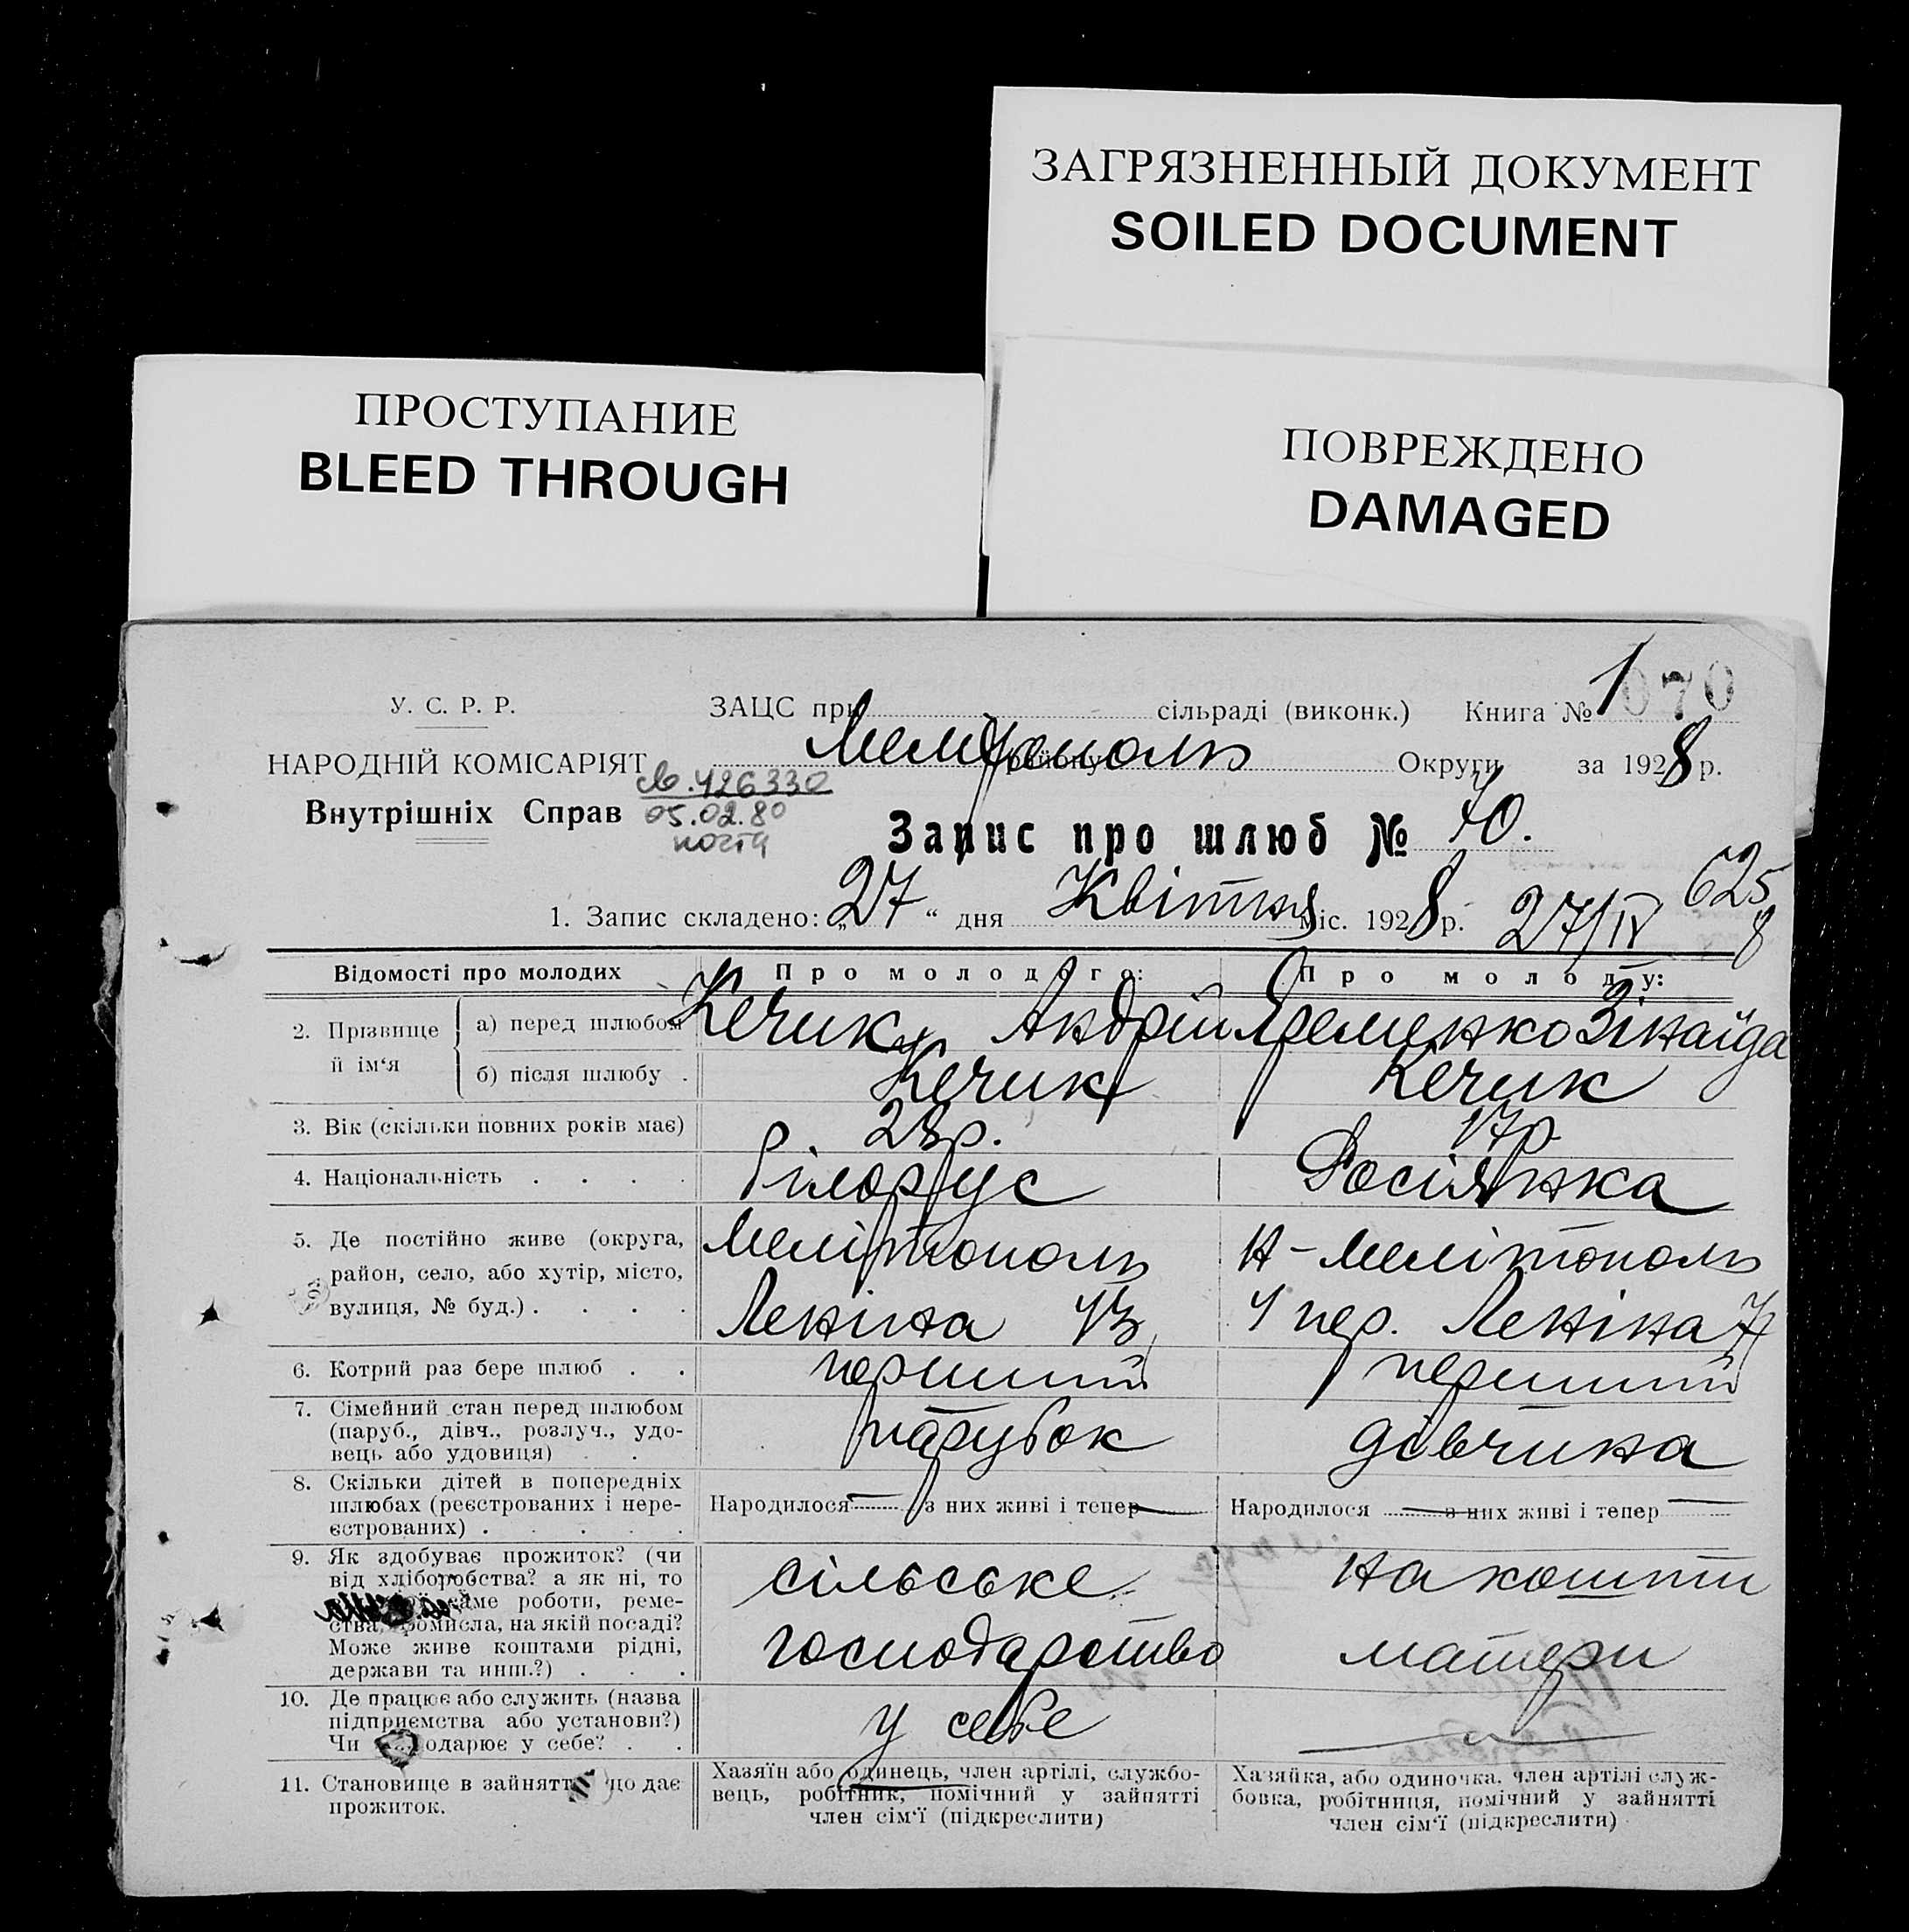 ЗАГРЯЗНЕННЫЙ ДОКУМЕНТ
SOILED DOCUMENT
ПРОСТУПАНИЕ
BLEED THROUGH
ПОВРЕЖДЕНО
DAMAGED
У. С. Р. Р.
ЗАЦС при сільраді (виконк.) Книга № 1 070
НАРОДНІЙ КОМІСАРІЯТ
Мелітополь району Округи за 1928 р.
Внутрішніх Справ
св. 426330
05.02.80
почта
Запис про шлюб № 40.
625
8
1. Запис складено: „27“ дня Квітня міс. 1928 р. 27/IV
Відомості про молодих
Про молодого:
Про молоду:
2. Прізвище й ім‘я
а) перед шлюбом
Кечик Андрій
Яременко Зінаїда
б) після шлюбу .
Кечик
Кечик
3. Вік (скільки повних років має)
28р.
17р
4. Національність . . . .
Білорус
Росіянка
5. Де постійно живе (округа,
район, село, або хутір, місто,
вулиця, № буд.) . . . .
Мелітополь
Леніна 43
Н-Мелітополь
4 пер. Леніна 7
6. Котрий раз бере шлюб . .
перший
перший
7. Сімейний стан перед шлюбом
(паруб., дівч., розлуч., удо-
вець або удовиця) . .
парубок
дівчина
8. Скільки дітей в попередніх
шлюбах (реєстрованих і нере-
єстрованих) . . . . .
Народилося — з них живі і тепер —
Народилося — з них живі і тепер —
9. Як здобуває прожиток? (чи
від хліборобства? а як ні, то
саме роботи, реме-
ства, промисла, на якій посаді?
Може живе коштами рідні,
держави та инш.?) . . .
сільське
господарство
на кошти
матери
10. Де працює або служить (назва
підприємства або установи?)
Чи одарює у себе? . .
у себе
—
11. Становище в занятті що дає
прожиток.
Хазяїн або одинець, член артілі, службо-
вець, робітник, помічний у зайнятті
член сім‘ї (підкреслити)
Хазяйка, або одиночка, член артілі служ-
бовка, робітниця, помічний у зайнятті
член сім‘ї (підкреслити)